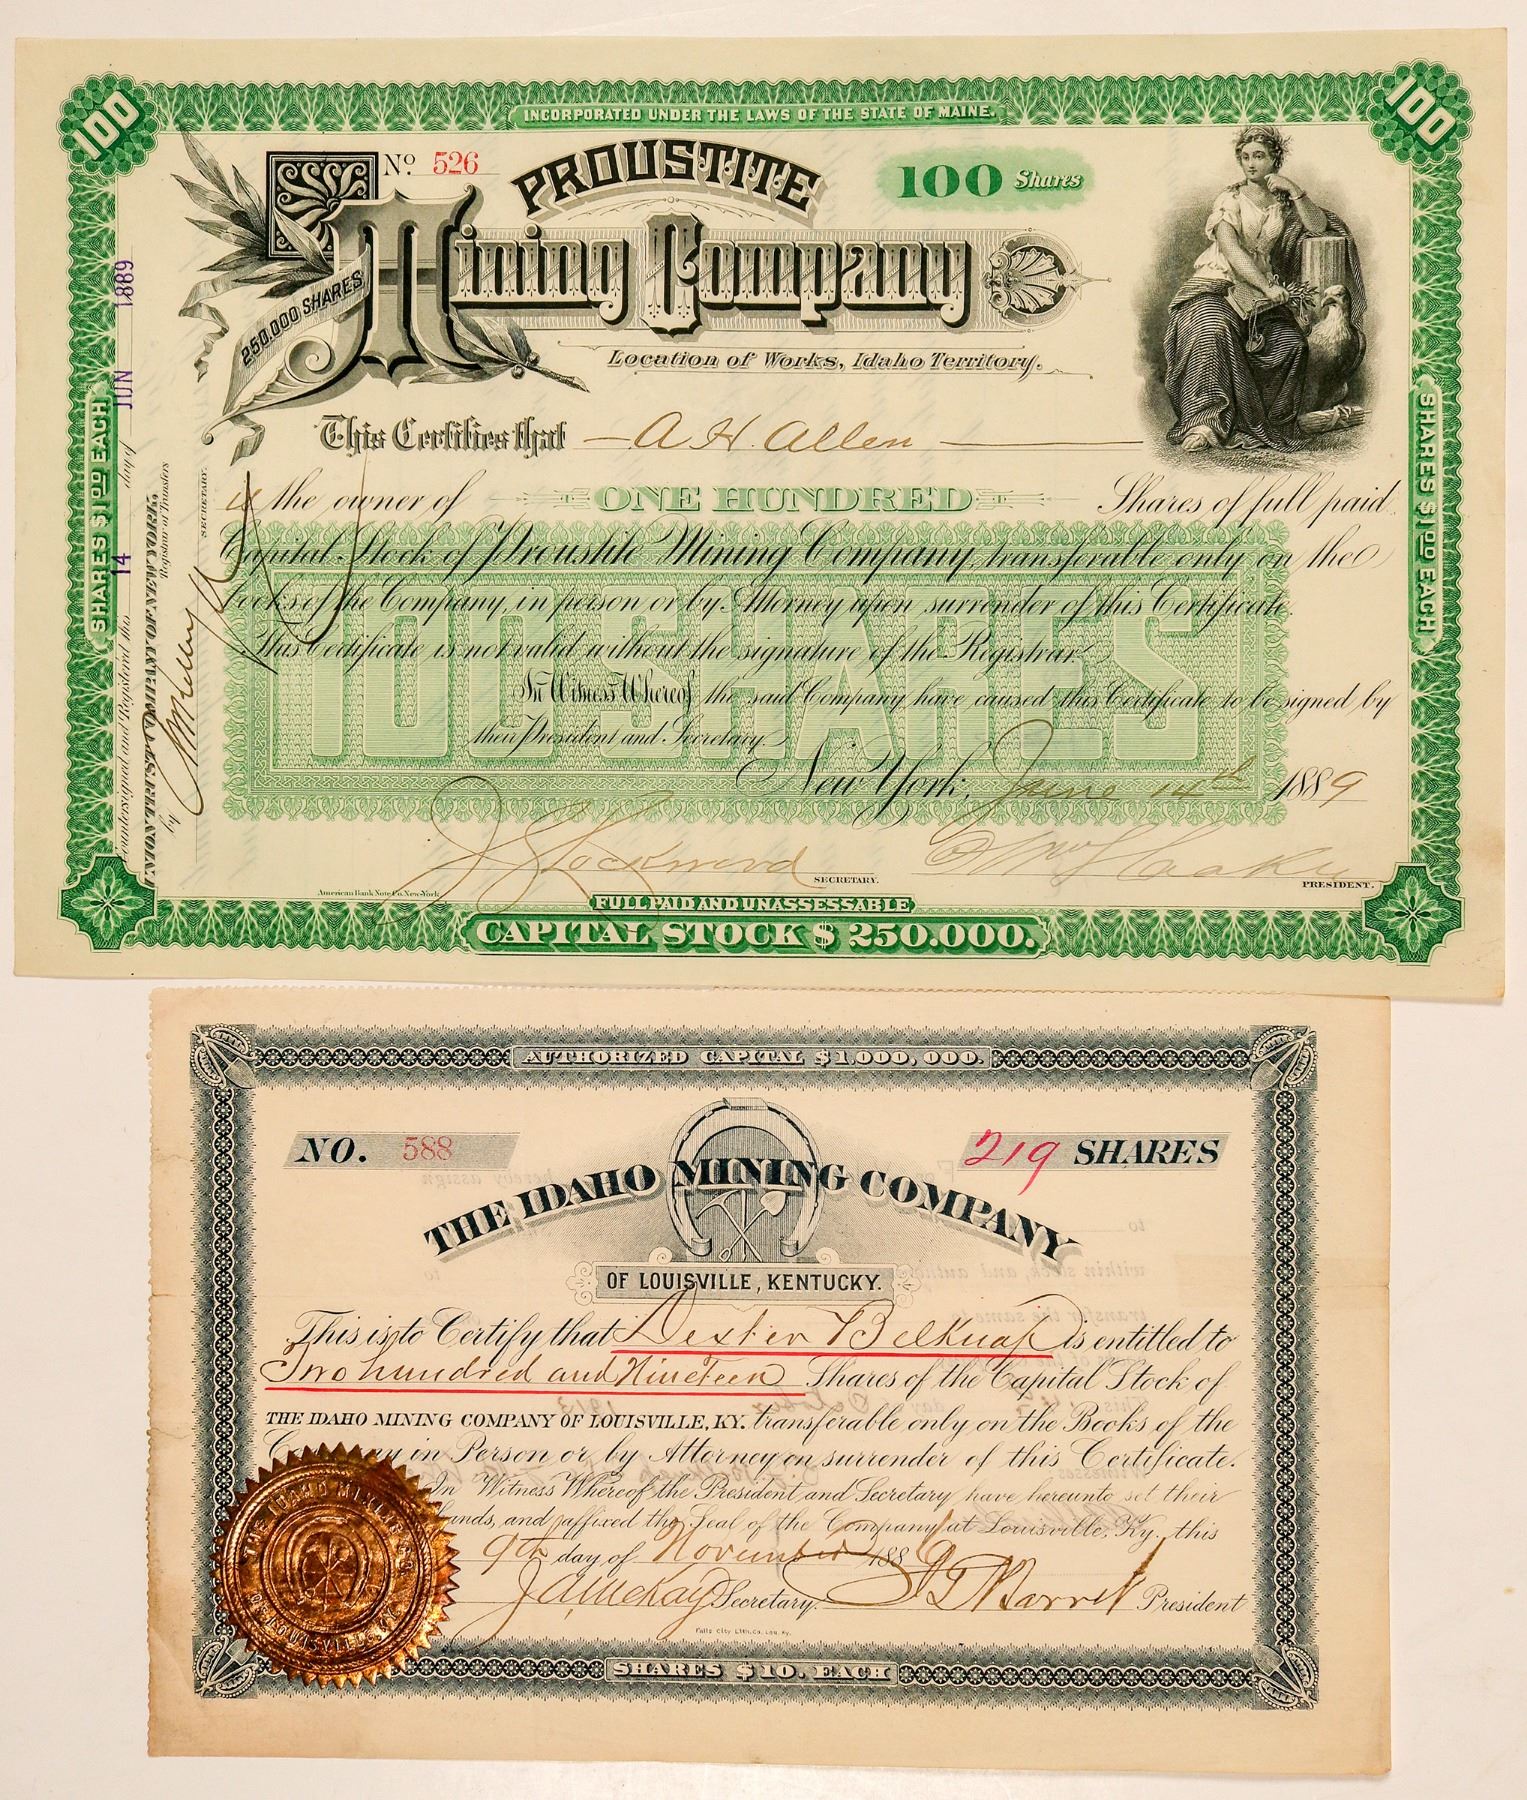 INCORPORATED UNDER THE LAWS OF THE STATE OF MAINE.
100
100
Nº 526
PROUSTITE
100 Shares
Mining Company
250.000 SHARES
Location of Works, Idaho Territory.
This Certifies that A H Allen
is the owner of ONE HUNDRED Shares of full paid
Capital Stock of Proustite Mining Company, transferable only on the
books of the Company, in person or by Attorney upon surrender of this Certificate.
This Certificate is not valid without the signature of the Registrar.
100 SHARES
In Witness Whereof the said Company have caused this Certificate to be signed by
their President and Secretary.
New York, June 14th 1889
J. Lockwood SECRETARY.
PRESIDENT.
American Bank Note Co. New-York
FULL PAID AND UNASSESSABLE
CAPITAL STOCK $ 250.000.
SHARES $1.00 EACH
SHARES $1.00 EACH
Countersigned and Registered this 14 day of JUN 1889
UNION TRUST COMPANY OF NEW YORK
Registrar of Transfers
by
SECRETARY.
AUTHORIZED CAPITAL $1,000,000.
NO. 588
219 SHARES
THE IDAHO MINING COMPANY
OF LOUISVILLE, KENTUCKY.
This is to Certify that Dexter Belknap is entitled to
Two hundred and Nineteen Shares of the Capital Stock of
THE IDAHO MINING COMPANY OF LOUISVILLE, KY. transferable only on the Books of the
Company in Person or by Attorney on surrender of this Certificate.
In Witness Whereof the President and Secretary have hereunto set their
hands, and affixed the Seal of the Company at Louisville, Ky., this
9th day of November 188
J A McKay Secretary. Barret President
Falls City Lith. Co. Lou. Ky.
THE IDAHO MINING CO.
OF LOUISVILLE KY.
SHARES $10. EACH